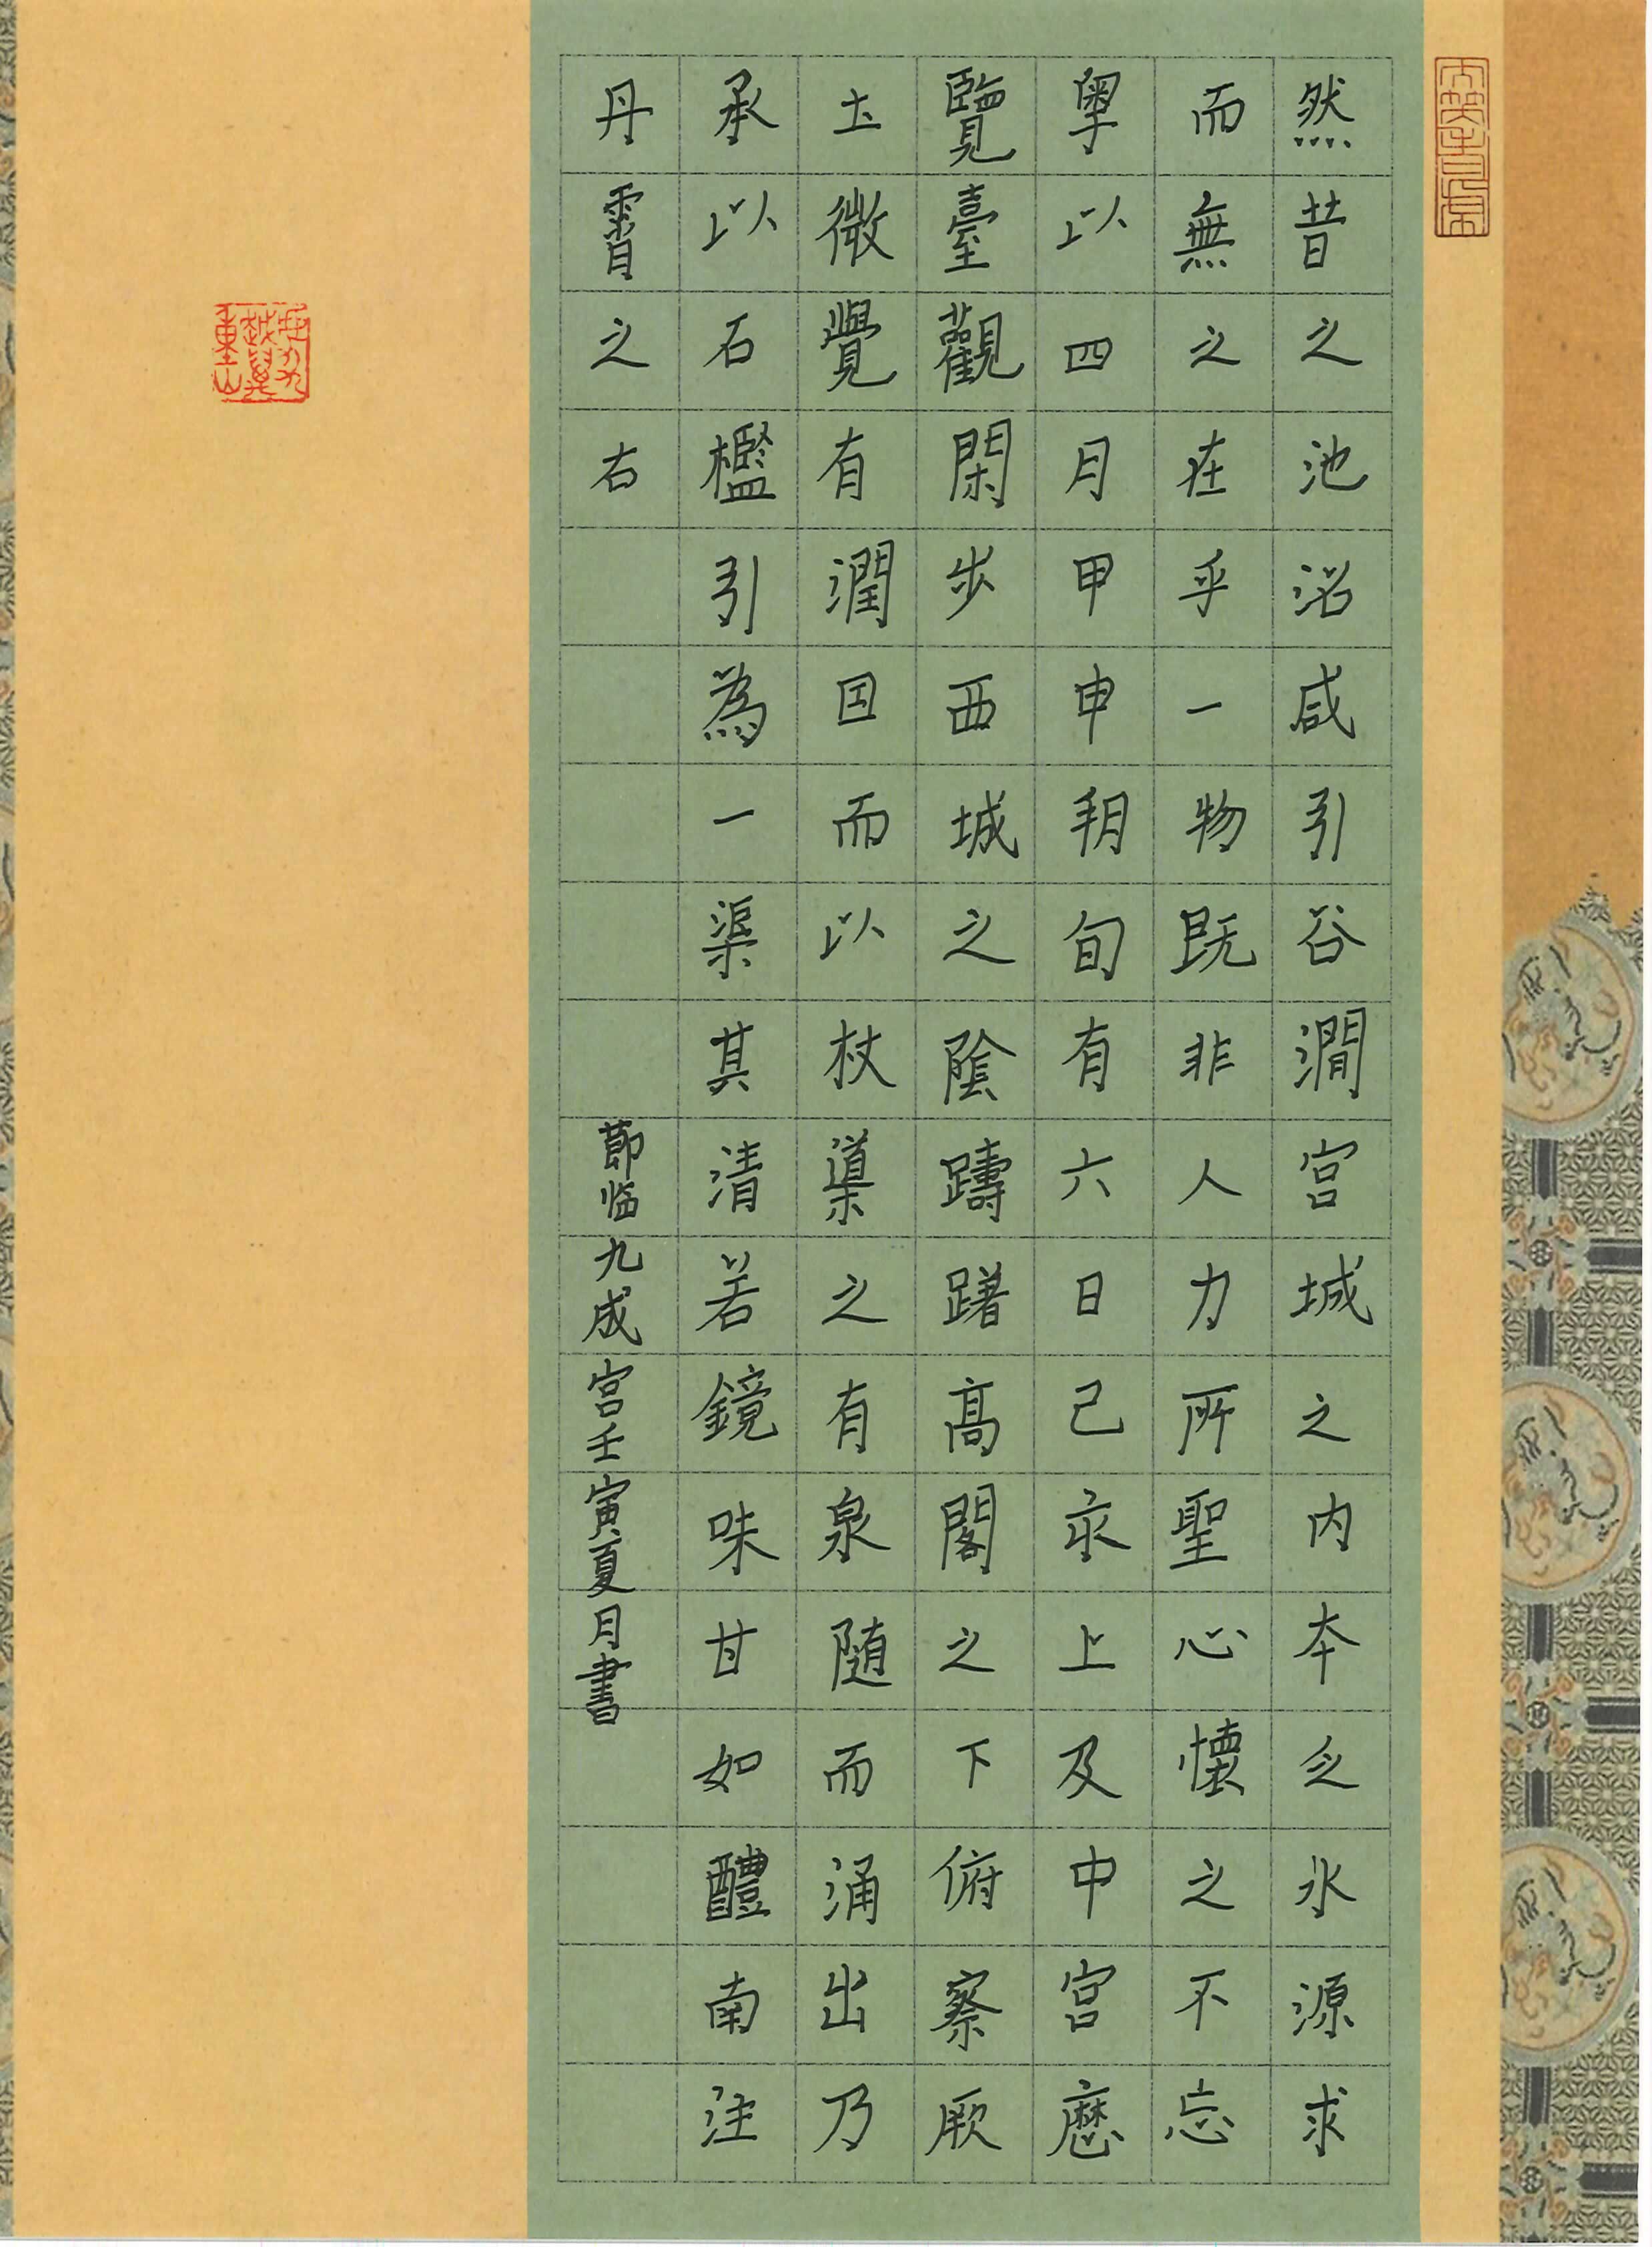 然昔之池沼咸引谷澗宮城之内本乏水源求
而無之在乎一物既非人力所聖心懷之不忘
粤以四月甲申朔旬有六日己亥上及中宮歷
覽臺觀閑步西城之陰躊躇高閣之下俯察厥
土微覺有潤因而以杖導之有泉随而涌出乃
承以石檻引為一渠其清若鏡味甘如醴南注
丹霄之右
節临九成宮壬寅夏月書